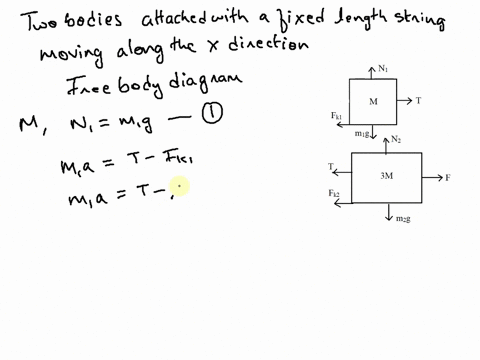 Two bodies attached with a fixed length string
moving along the x direction
Free body diagram
M, N₁ = m₁g — ①
m₁a = T - Fk₁
m₁a = T -
N₁
M
T
Fk1
m₁g
N₂
T
3M
F
Fk2
m₂g